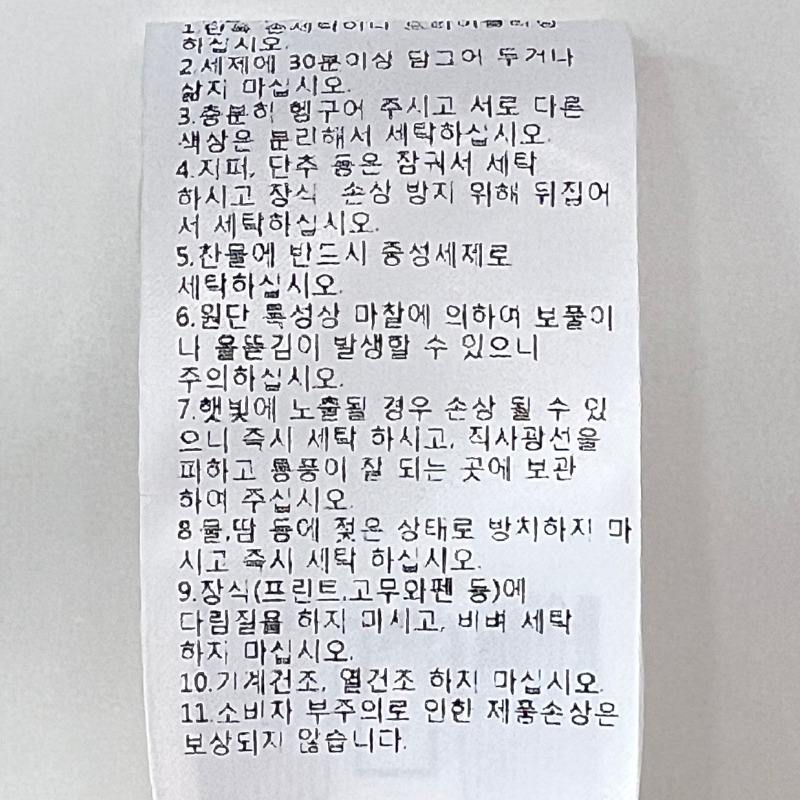 1.단독 손세탁이나 드라이클리닝
하십시오.
2.세제에 30분이상 담그어 두거나
삶지 마십시오.
3.충분히 헹구어 주시고 서로 다른
색상은 분리해서 세탁하십시오.
4.지퍼, 단추 등은 잠궈서 세탁
하시고 장식 손상 방지 위해 뒤집어
서 세탁하십시오.
5.찬물에 반드시 중성세제로
세탁하십시오.
6.원단 특성상 마찰에 의하여 보풀이
나 올뜯김이 발생할 수 있으니
주의하십시오.
7.햇빛에 노출될 경우 손상 될 수 있
으니 즉시 세탁 하시고, 직사광선을
피하고 통풍이 잘 되는 곳에 보관
하여 주십시오.
8.물,땀 등에 젖은 상태로 방치하지 마
시고 즉시 세탁 하십시오.
9.장식(프린트,고무와펜 등)에
다림질을 하지 마시고, 비벼 세탁
하지 마십시오.
10.기계건조, 열건조 하지 마십시오.
11.소비자 부주의로 인한 제품손상은
보상되지 않습니다.